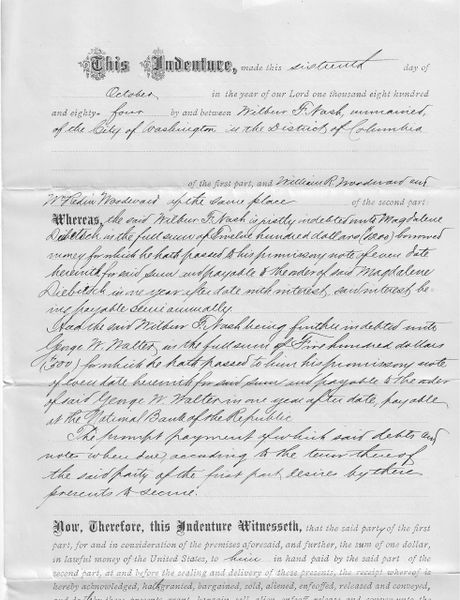 This Indenture, made this sixteenth day of
October in the year of our Lord one thousand eight hundred
and eighty-four by and between Wilbur F. Nash, unmarried,
of the City of Washington in the District of Columbia
of the first part, and William R. Woodward and
W. Redin Woodward of the same place of the second part:
Whereas, the said Wilbur F. Nash is justly indebted unto Magdalene
Diebitsch in the full sum of Twelve hundred dollars (1200) borrowed
money for which he hath passed to his promissory note of even date
herewith for said sum and payable to the order of said Magdalene
Diebitsch in one year after date with interest, said interest be-
ing payable semi annually.
And the said Wilbur F. Nash being further indebted unto
George W. Walter, in the full sum of Five hundred dollars
(500) for which he hath passed to him his promissory note
of even date herewith for said sum and payable to the order
of said George W. Walter in one year after date, payable
at the National Bank of the Republic
The prompt payment of which said debts and
notes when due, according to the tenor thereof
the said party of the first part desires by these
presents to secure.
Now, Therefore, this Indenture Witnesseth, that the said party of the first
part, for and in consideration of the premises aforesaid, and further, the sum of one dollar,
in lawful money of the United States, to him in hand paid by the said part of the
second part, at and before the sealing and delivery of these presents, the receipt whereof is
hereby acknowledged, hath granted, bargained, sold, aliened, enfeoffed, released and conveyed,